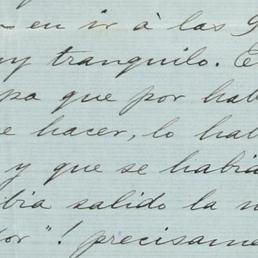 en ir á las 9
tranquilo. E
que por hab
hacer, lo hab
y que se habia
salido la
"! precisame